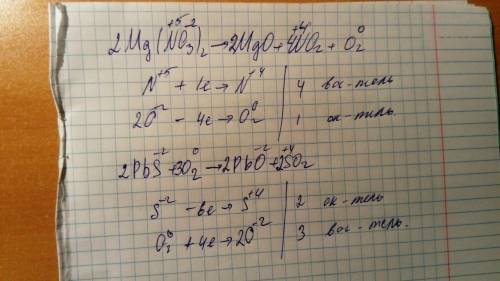 2Mg(N⁺⁵O₃⁻²)₂ → 2MgO + 4N⁺⁴O₂ + O₂⁰
N⁺⁵ + 1e → N⁺⁴ | 4 вос-тель
2O⁻² - 4e → O₂⁰ | 1 ок-тель.
2PbS⁻² + 3O₂⁰ → 2PbO⁻² + 2S⁺⁴O₂
S⁻² - 6e → S⁺⁴ | 2 ок-тель
O₂⁰ + 4e → 2O⁻² | 3 вос-тель.